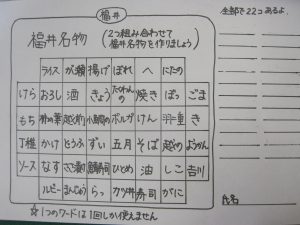 福井
全部で22コあるよ.
福井名物 (2つ組み合わせて
福井名物を作りましょう)
ライス が 揚げ ぼれ へ にたの
けら おろし 酒 きょう たくわんの 焼き ぼっ ごま
もち 越前 ボルガ けん 羽重 き
丁稚 かけ とうふ ずい 五月 そば 越の ようかん
ソース なす ひとめ 油 しこ 吉川
ルビー まんじゅう らっ カツ丼 寿司 がに
氏名
☆1つのワードは1回しか使えません